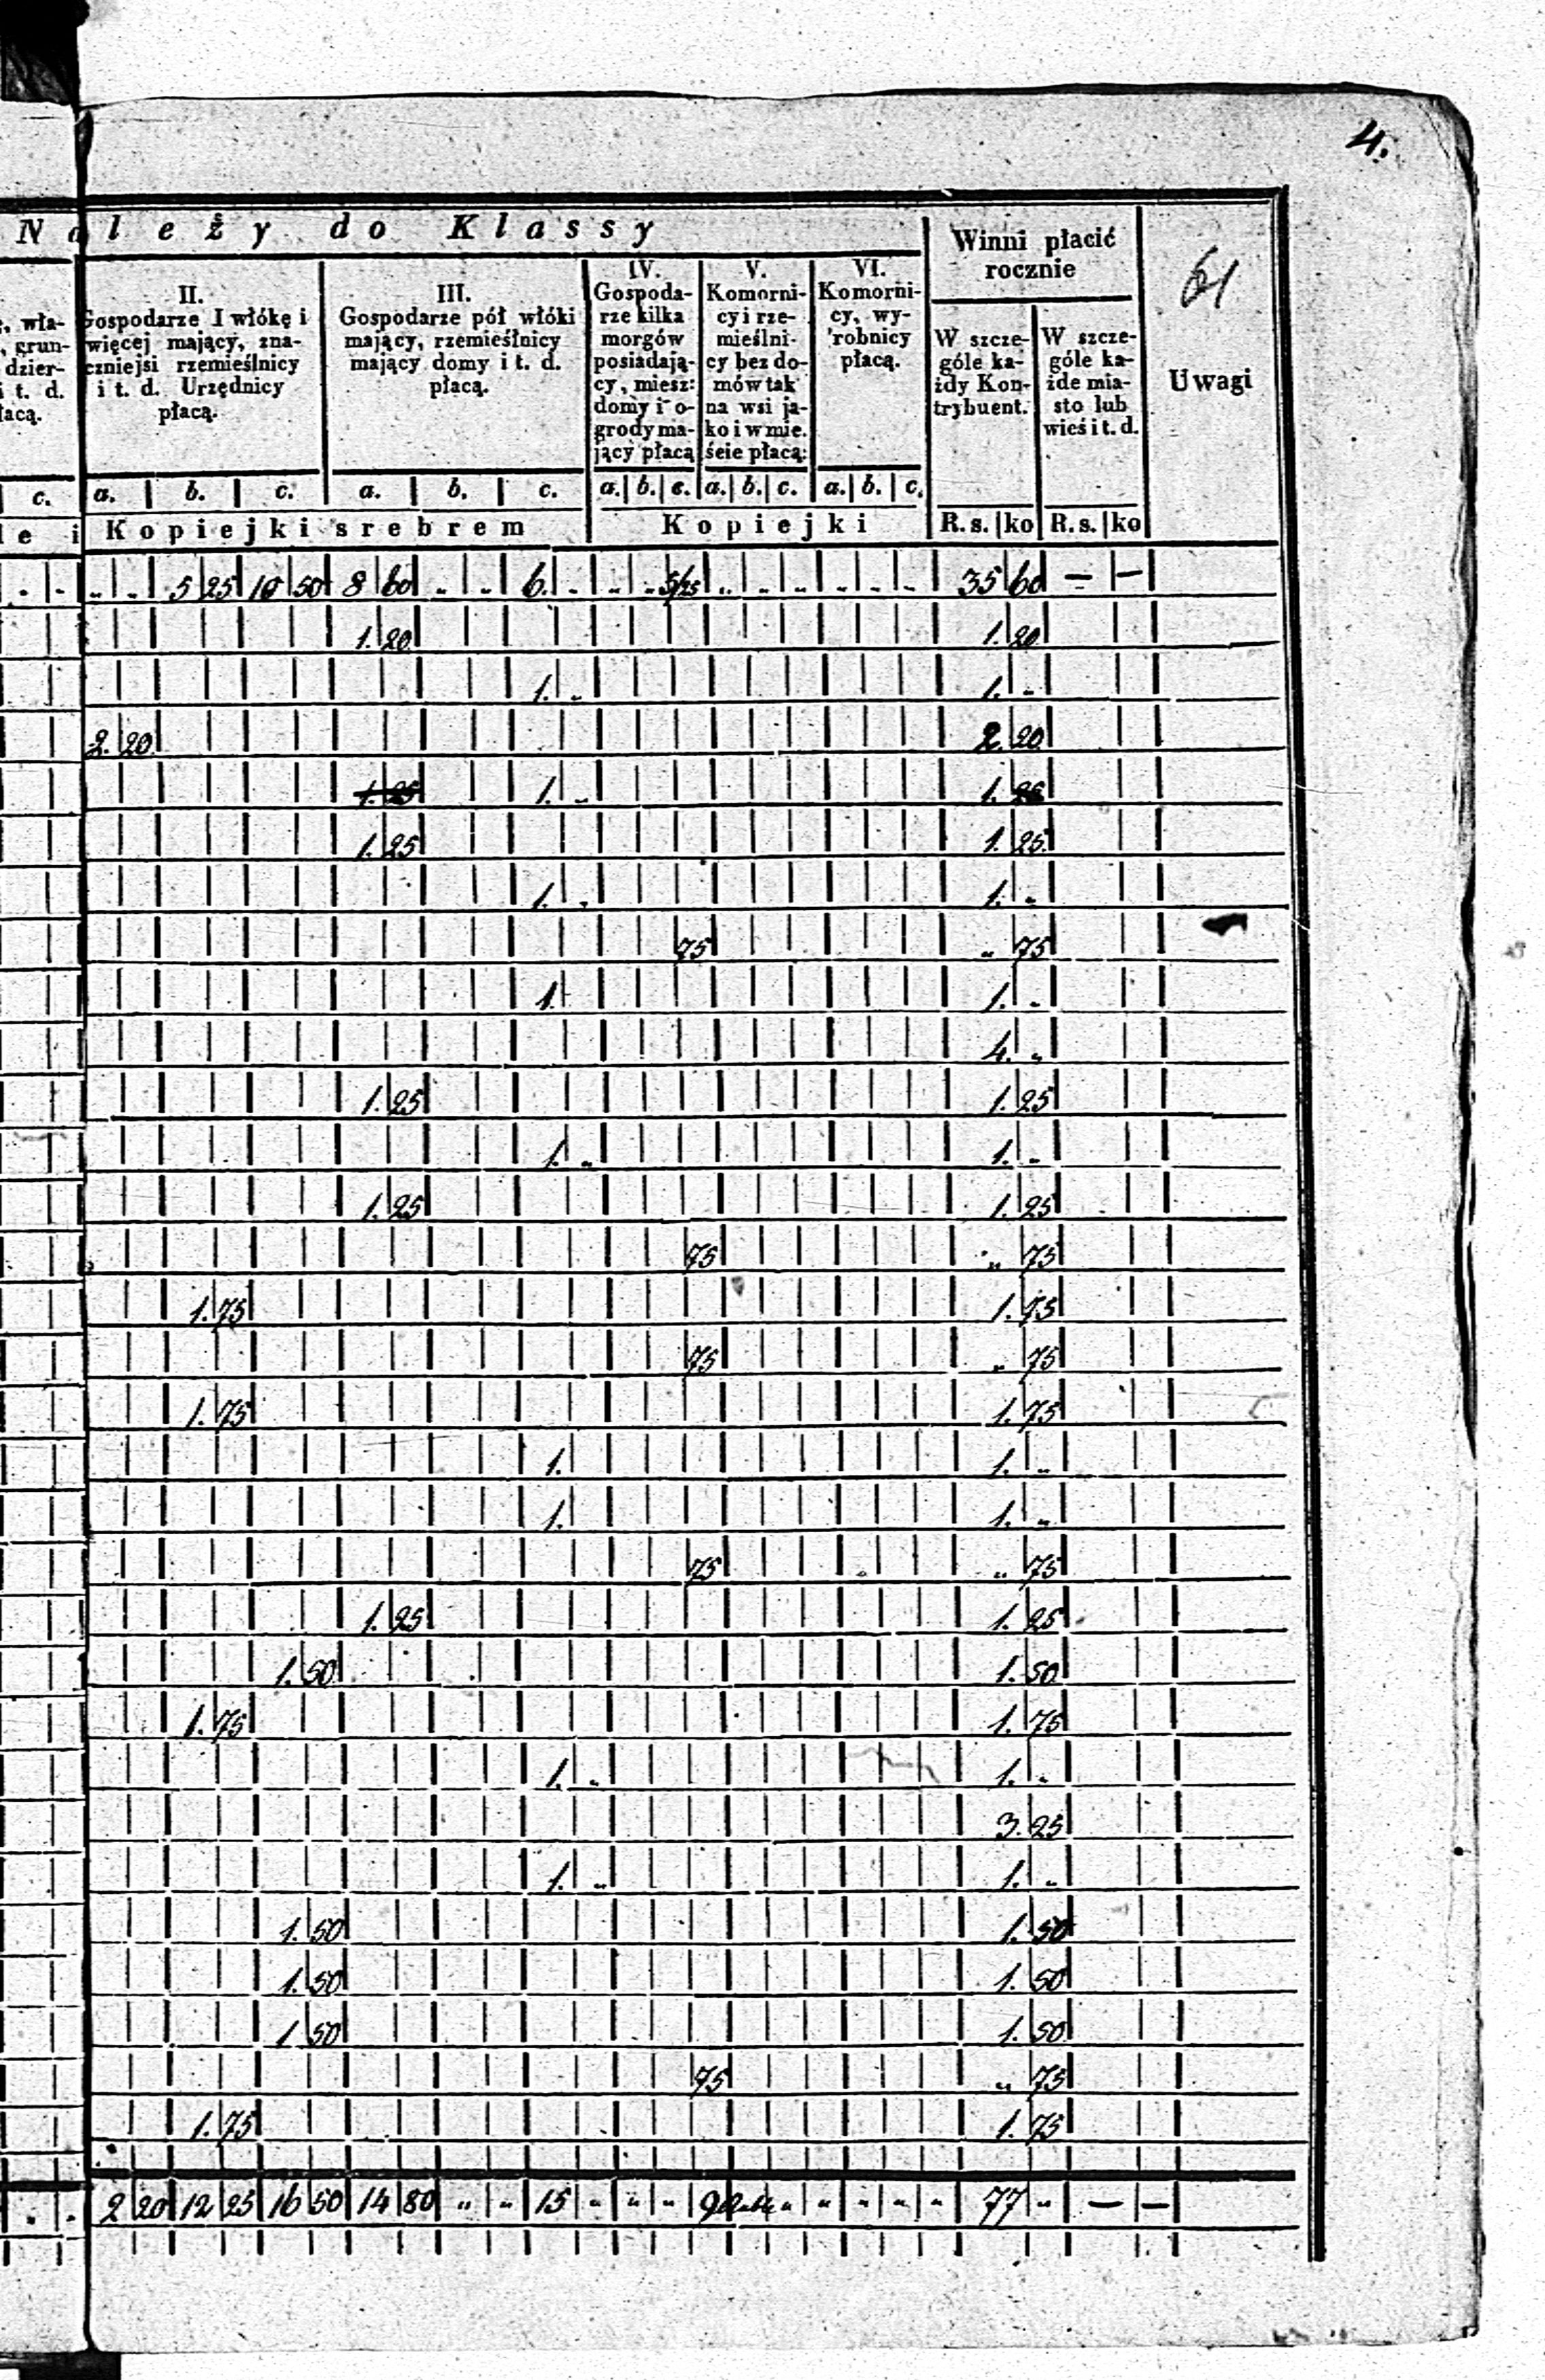 4.
Należy do Klassy
Winni płacić
rocznie
Uwagi
61
, wła-
, grun-
dzier-
i t. d.
łacą.
II.
Gospodarze I włókę i
więcej mający, zna-
czniejsi rzemieślnicy
i t. d. Urzędnicy
płacą.
III.
Gospodarze pół włóki
mający, rzemieślnicy
mający domy i t. d.
płacą.
IV.
Gospoda-
rze kilka
morgów
posiadają-
cy, miesz:
domy i o-
grody ma-
jący płacą
V.
Komorni-
cy i rze-
mieślni-
cy bez do-
mów tak
na wsi ja-
ko i w mie.
ście płacą:
VI.
Komorni-
cy, wy-
robnicy
płacą.
W szcze-
góle ka-
żdy Kon-
trybuent.
W szcze-
góle ka-
żde mia-
sto lub
wieś i t. d.
c. a. b. c. a. b. c. a. b. c. a. b. c. a. b. c.
e i Kopiejki srebrem Kopiejki R. s. ko R. s. ko
. - „ „ 5 25 10 50 8 60 „ „ 6. - „ „ „ 5/25 „ „ „ „ „ „ 35 60 — —
1. 20 1. 20
1. „ 1. „
2. 20 2 20
1. 25 1. „ 1. 25
1. 25 1. 25
1. „ 1. „
75 „ 75
1. 1. „
4. „
1. 25 1. 25
1. „ 1. „
1. 25 1. 25
75 „ 75
1. 75 1. 75
75 „ 75
1. 75 1. 75
1. 1. „
1. 1. „
75 „ 75
1. 25 1. 25
1. 50 1. 50
1. 75 1. 75
1. „ 1. „
3. 25
1. „ 1. „
1. 50 1. 50
1. 50 1. 50
1. 50 1. 50
75 „ 75
1. 75 1. 75
. . 2 20 12 25 16 50 14 80 „ „ 15 „ „ „ „ „ „ „ „ 77 „ — —